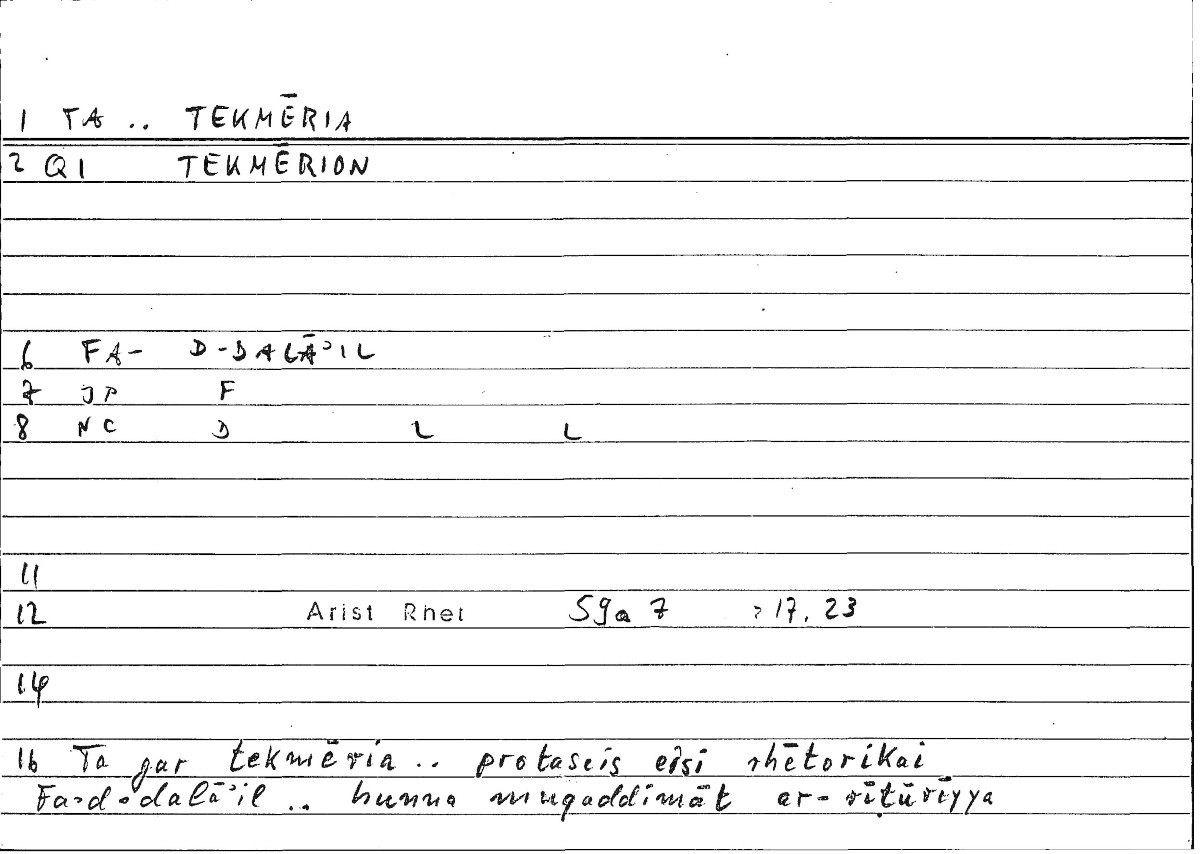 1 TA .. TEKMĒRIA
2 Q1 TEKMĒRION
6 FA- D-DALĀʾIL
7 JP F
8 NC D L L
11
12 Arist Rhet 59a 7 = 17, 23
14
16 Ta gar tekmēria .. protaseis eisi rhētorikai
Fa-d-dalāʾil .. hunna muqaddimāt ar-rīṭūrīyya